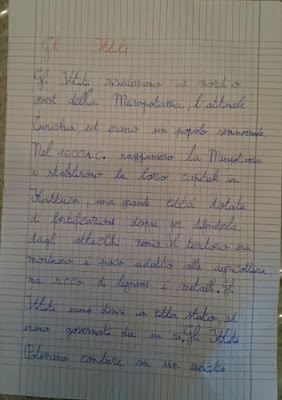 Gl Ittiti
Gl Ittiti risiedevano a nord o
ovest della Mesopotamia, l'attuale
Turchia ed erano un popolo seminomade.
Nel 1600 a.C. raggiunsero la Mesopotamia
e stabilirono la loro capitale in
Hattusa, una grande città dotata
di fortificazioni per difenderla
dagli attacchi nemici. Il territorio era
montano e poco adatto alla agricoltura,
ma ricco di legname e metalli. Gl
Ittiti erano divisi in città stato ed
erano governati da un re. Gl Ittiti
Potevano contare su un esercito